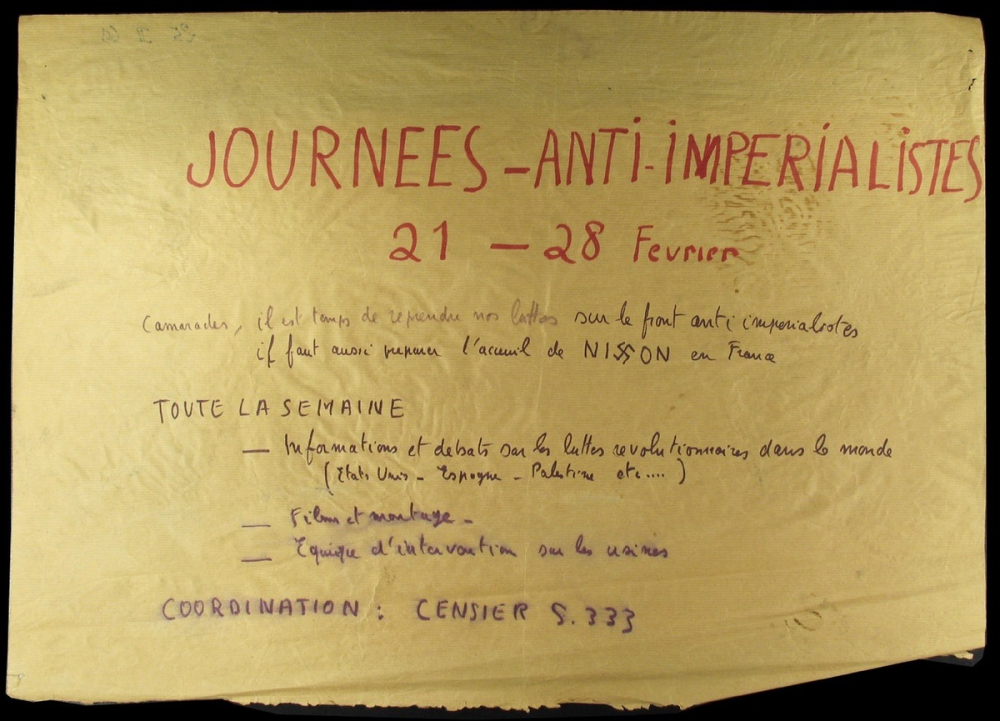 JOURNEES - ANTI-IMPERIALISTES
21 — 28 Fevrier
Camarades, il est temps de reprendre nos luttes sur le front anti imperialistes
il faut aussi preparer l'acceuil de NIXON en France
TOUTE LA SEMAINE
— Informations et debats sur les luttes revolutionnaires dans le monde
(Etats Unis - Espagne - Palestine etc....)
— Films et montage -
— Equipe d'intervention sur les usines
COORDINATION : CENSIER S. 333